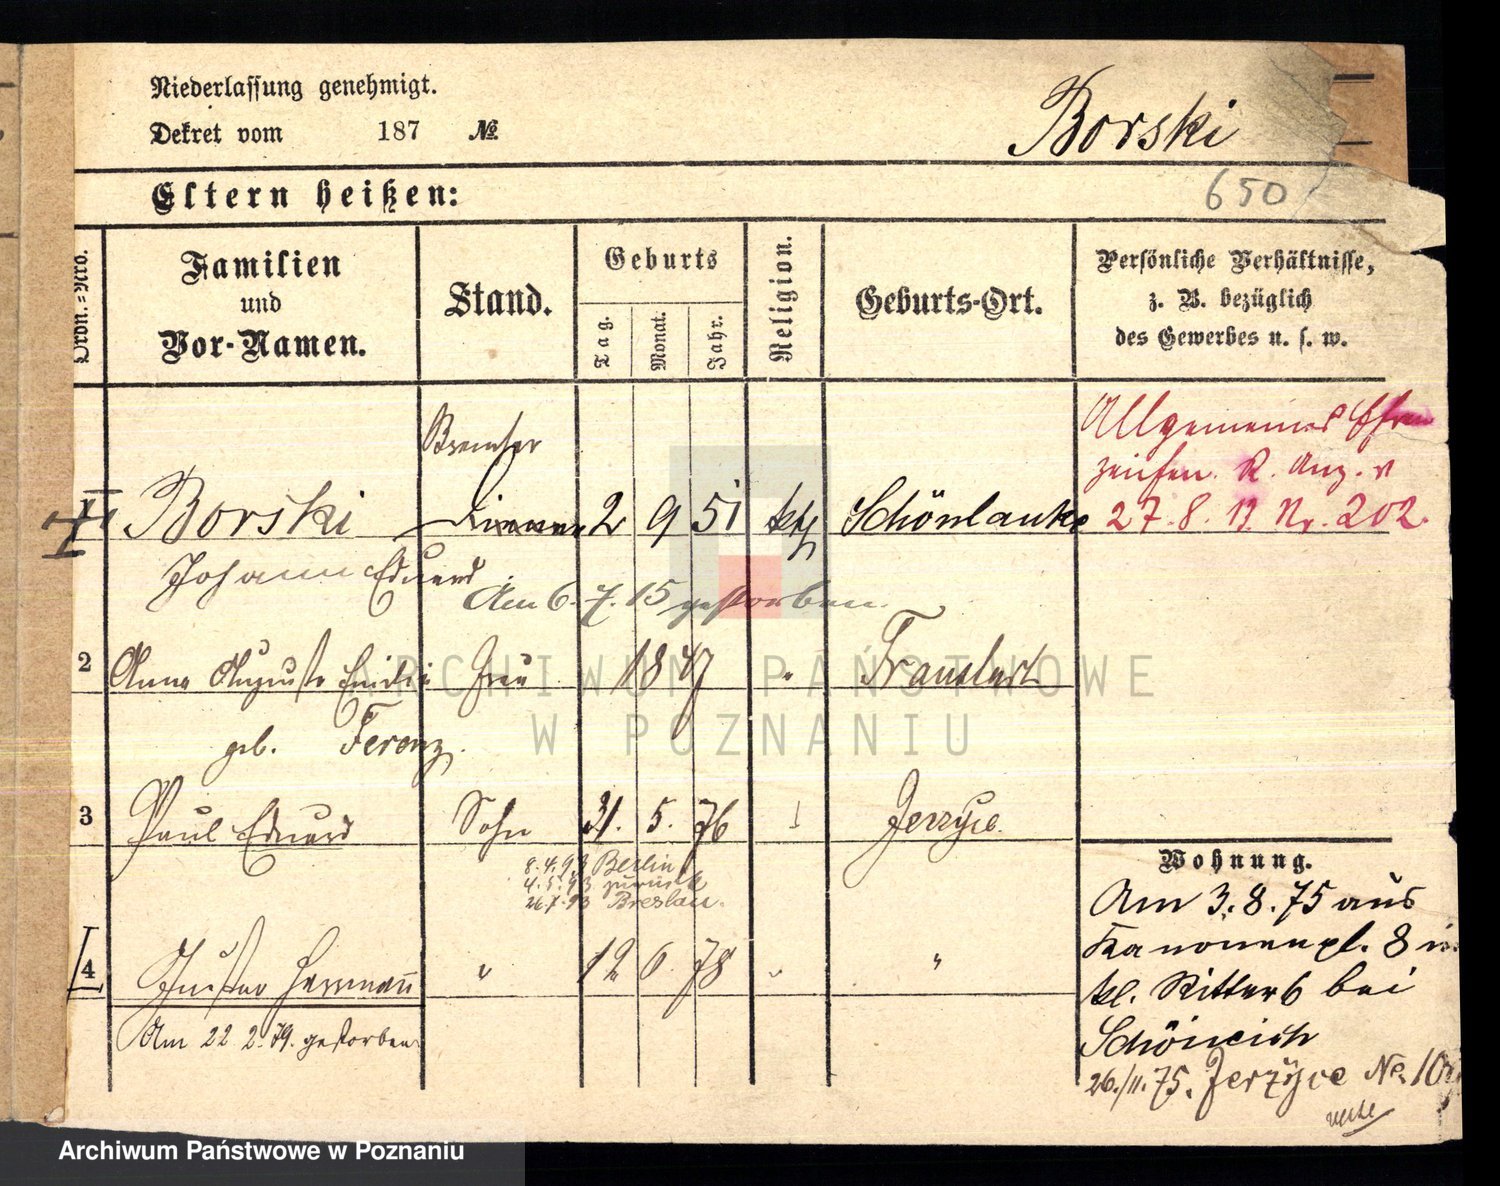 Niederlassung genehmigt.
Dekret vom 187 №
Borski
Eltern heißen:
650
Ordn.=Nro.
Familien
und
Vor-Namen.
Stand.
Geburts
Tag.
Monat.
Jahr.
Religion.
Geburts-Ort.
Persönliche Verhältnisse,
z. B. bezüglich
des Gewerbes u. s. w.
Allgemeines Ehren
zeichen. R. Anz. v
27. 8. 13 Nr. 202.
Bremser
Borski Diener 2 9 51 kth Schönlanke
Johann Eduard
Am 6. 7. 15 gestorben.
2 Anna Auguste Emilie Frau 1847 " Fraustadt
geb. Ferenz.
3 Paul Eduard Sohn 31. 5. 76 Jerzyce
8.4.93 Berlin
4.5.93 zurück
26.7.93 Breslau.
4 Gustav Hermann " 12 6. 78 " "
Am 22 2. 79. gestorben
Wohnung.
Am 3. 8. 75 aus
Kanonenpl. 8 in
kl. Ritter 6 bei
Schöneich
26./11. 75. Jerzyce No.
ARCHIWUM PAŃSTWOWE
W POZNANIU
Archiwum Państwowe w Poznaniu